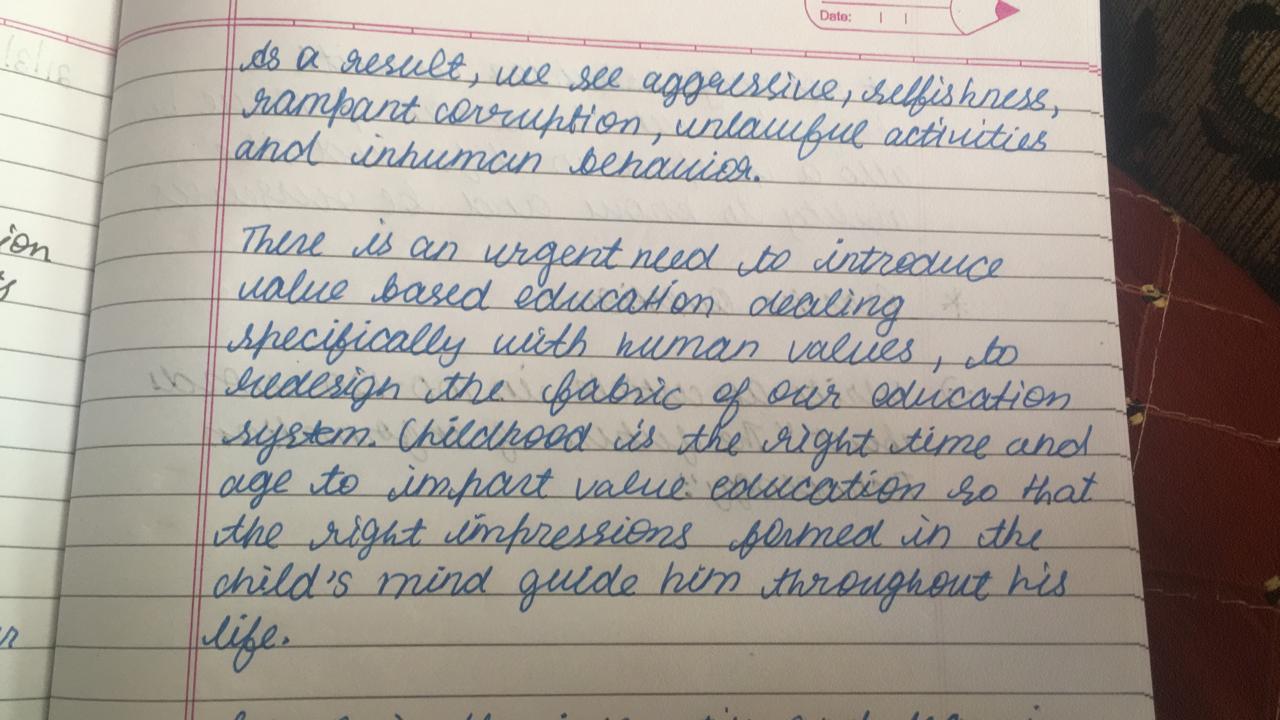 Date:
As a result, we see aggressive, selfishness,
rampant corruption, unlawful activities
and inhuman behavior.
There is an urgent need to introduce
value based education dealing
specifically with human values, to
redesign the fabric of our education
system. Childhood is the right time and
age to impart value education so that
the right impressions formed in the
child's mind guide him throughout his
life.
ion